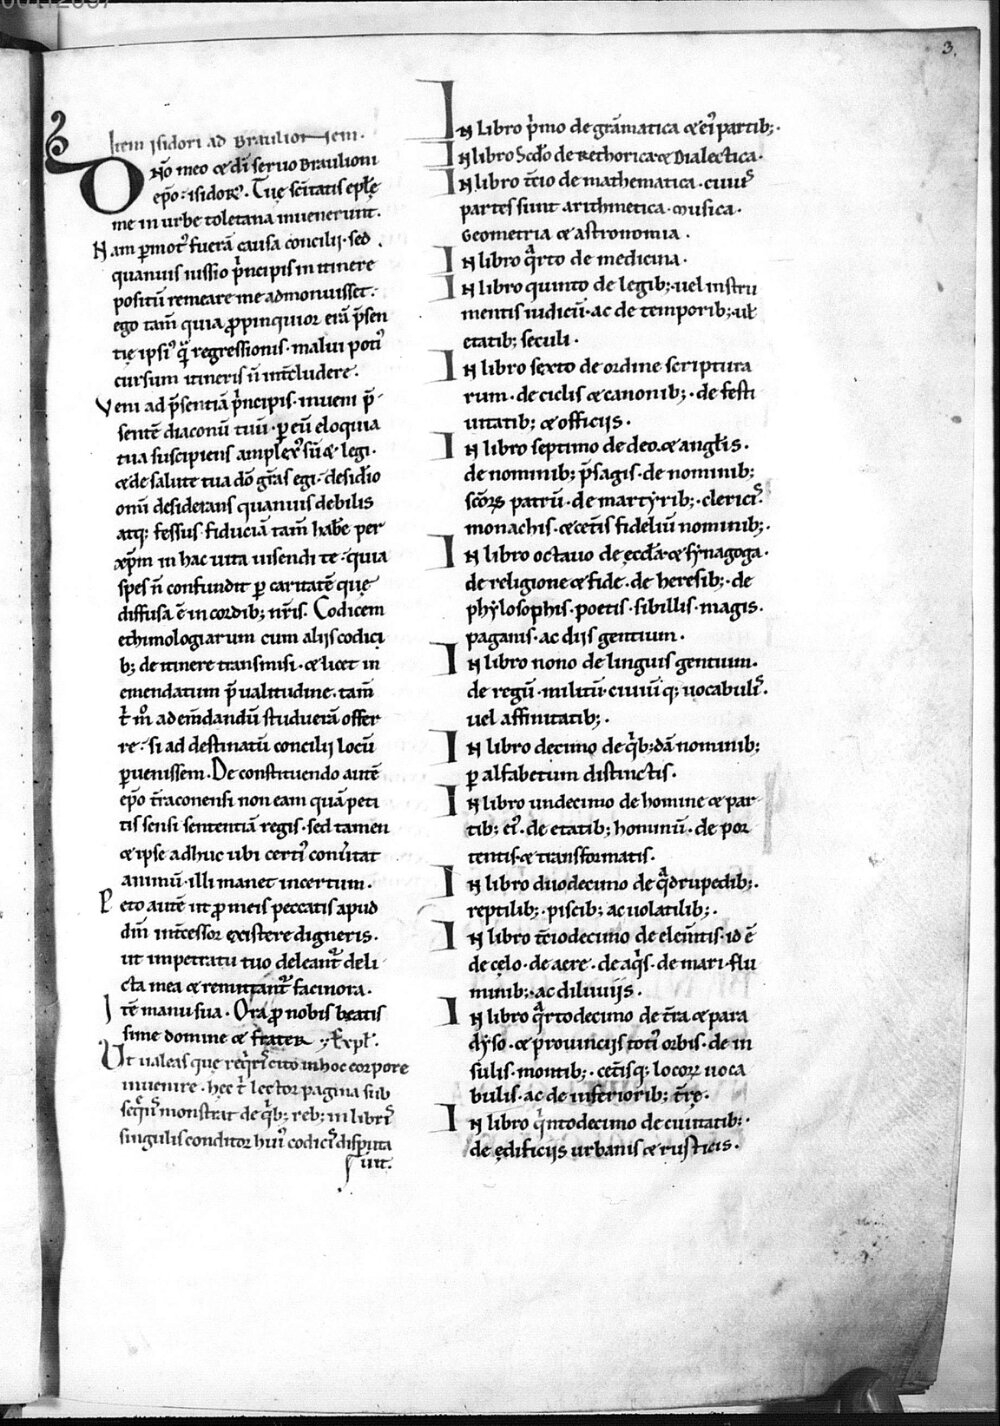 3.
Item isidori ad Braulionem.
Dño meo ⁊ dī seruo Braulioni
epō: isidorꝰ. Tuę scitatis eplę
me in urbe toletana inuenerunt.
Nam ꝑmotꝰ fuerā causa concilij. sed
quanuis iussio p̄ncipis in itinere
positū remeare me admonuisset:
ego tam̄ quia ꝓpinquior erā p̄sen
tię ipsiꝰ q̄ regressionis. malui potiꝰ
cursum itineris n̄ int̄cludere.
Veni ad p̄sentiā p̄ncipis. inueni p̄
sentē diaconū tuū. ꝑ eū eloquia
tua suscipiens amplexꝰ sū ⁊ legi.
⁊ de salute tua dō gr̄as egi. desidio
omī desiderans quanuis debilis
atq: fessus fiduciā tam̄ habe per
xp̄m in hac uita uisendi te. quia
spes n̄ confundit ꝑ caritatē quę
diffusa ē in cordib; nr̄is. Codicem
ethimologiarum cum alijs codici
b; de itinere transmisi. ⁊ licet in
emendatum p̄ ualitudine. tam̄
t̄ m̊ ad em̄dandū studuerā offer
re. si ad destinatū concilij locū
ꝑuenissem. De constituendo autē
epō t̄raconensi non eam quā peti
tis sensi sententiā regis. sed tamen
⁊ ipse adhuc ubi certiꝰ conuertat
animū. illi manet incertum.
Peto autē ut ꝓ meis peccatis apud
dm̄ int̄cessor existere digneris.
ut impetratu tuo deleant̄ deli
cta mea ⁊ remittant̄ facinora.
Itē manu sua. Ora ꝓ nobis beatis
sime domine ⁊ frater. Expl.
Ut ualeas que req̄ris cito in hoc corpore
inuenire. hęc t̄ lector pagina sub
seq̄ns monstrat de q̄b; reb; in libris
singulis conditor huiꝰ codicis disputa
uit.
In Libro p̄mo de grāmatica ⁊ eiꝰ partib;.
In libro Scdo de Rethorica ⁊ Dialectica.
In libro t̄cio de mathematica. cuiꝰ
partes sunt arithmetica. musica.
Geometria ⁊ astronomia.
In libro q̄rto de medicina.
In libro quinto de legib;. uel instru
mentis iudicū. ac de temporib;. ul̄
etatib; seculi.
In libro sexto de ordine scriptura
rum. de ciclis ⁊ canonib;. de festi
uitatib; ⁊ officijs.
In libro septimo de deo. ⁊ angl̄is.
de nominib; p̄sagis. de nominib;
sc̄orꝝ patrū. de martyrib;. clericis.
monachis. ⁊ cet̄is fideliū nominib;.
In libro octauo de eccl̄a ⁊ synagoga.
de religione ⁊ fide. de heresib;. de
phylosophis. poetis. sibillis. magis.
paganis. ac dijs gentium.
In libro nono de linguis gentium.
de regū. militū. ciuiū q; uocabulis.
uel affinitatib;.
In libro decimo de q̄b;dā nominib;
ꝑ alfabetum distinctis.
In libro undecimo de homine ⁊ par
tib; eiꝰ. de etatib; hominū. de por
tentis. ⁊ transformatis.
In libro duodecimo de q̄drupedib;.
reptilib;. piscib; ac uolatilib;.
In libro t̄ciodecimo de elem̄tis. id ē
de cęlo. de aere. de aq̄s. de mari. flu
minib;. ac diluuijs.
In libro q̄rtodecimo de t̄ra ⁊ para
dyso. ⁊ prouincijs totiꝰ orbis. de in
sulis. montib;. cet̄isq; locorꝝ uoca
bulis. ac de inferiorib; t̄rę.
In libro q̄ntodecimo de ciuitatib;.
de ędificijs urbanis ⁊ rusticis.